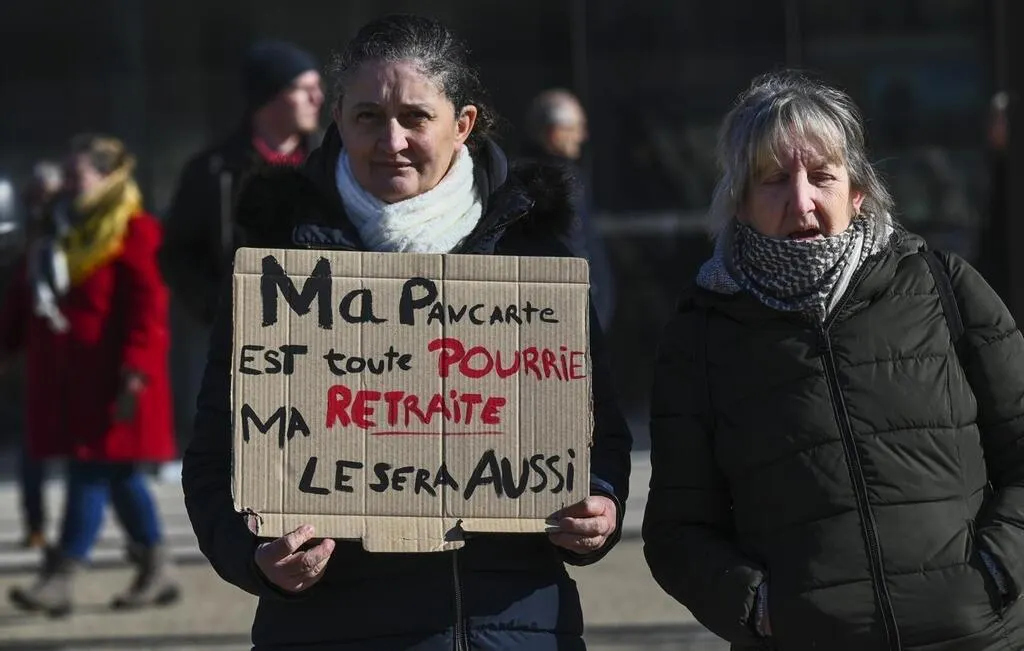 Ma Pancarte
EST toute POURRIE
MA RETRAITE
LE SERA AUSSi